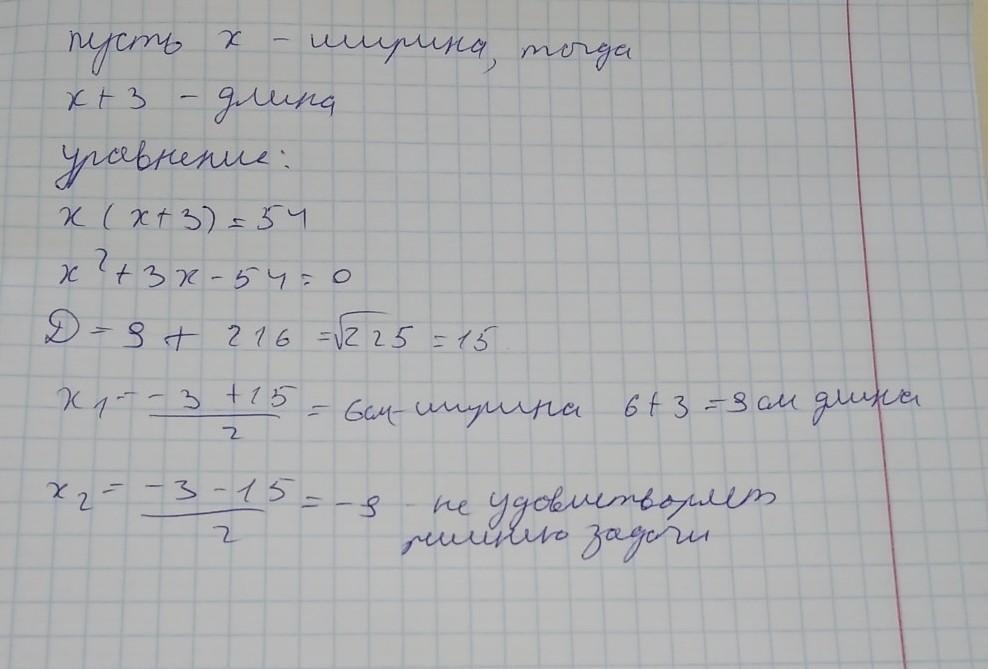 пусть х - ширина, тогда
х+3 - длина
уравнение:
х(х+3)=54
х²+3х-54=0
D=9+216=√225=15
х₁=-3+15/2=6см-ширина 6+3=9см длина
х₂=-3-15/2=-9 не удовлетворяет
решению задачи